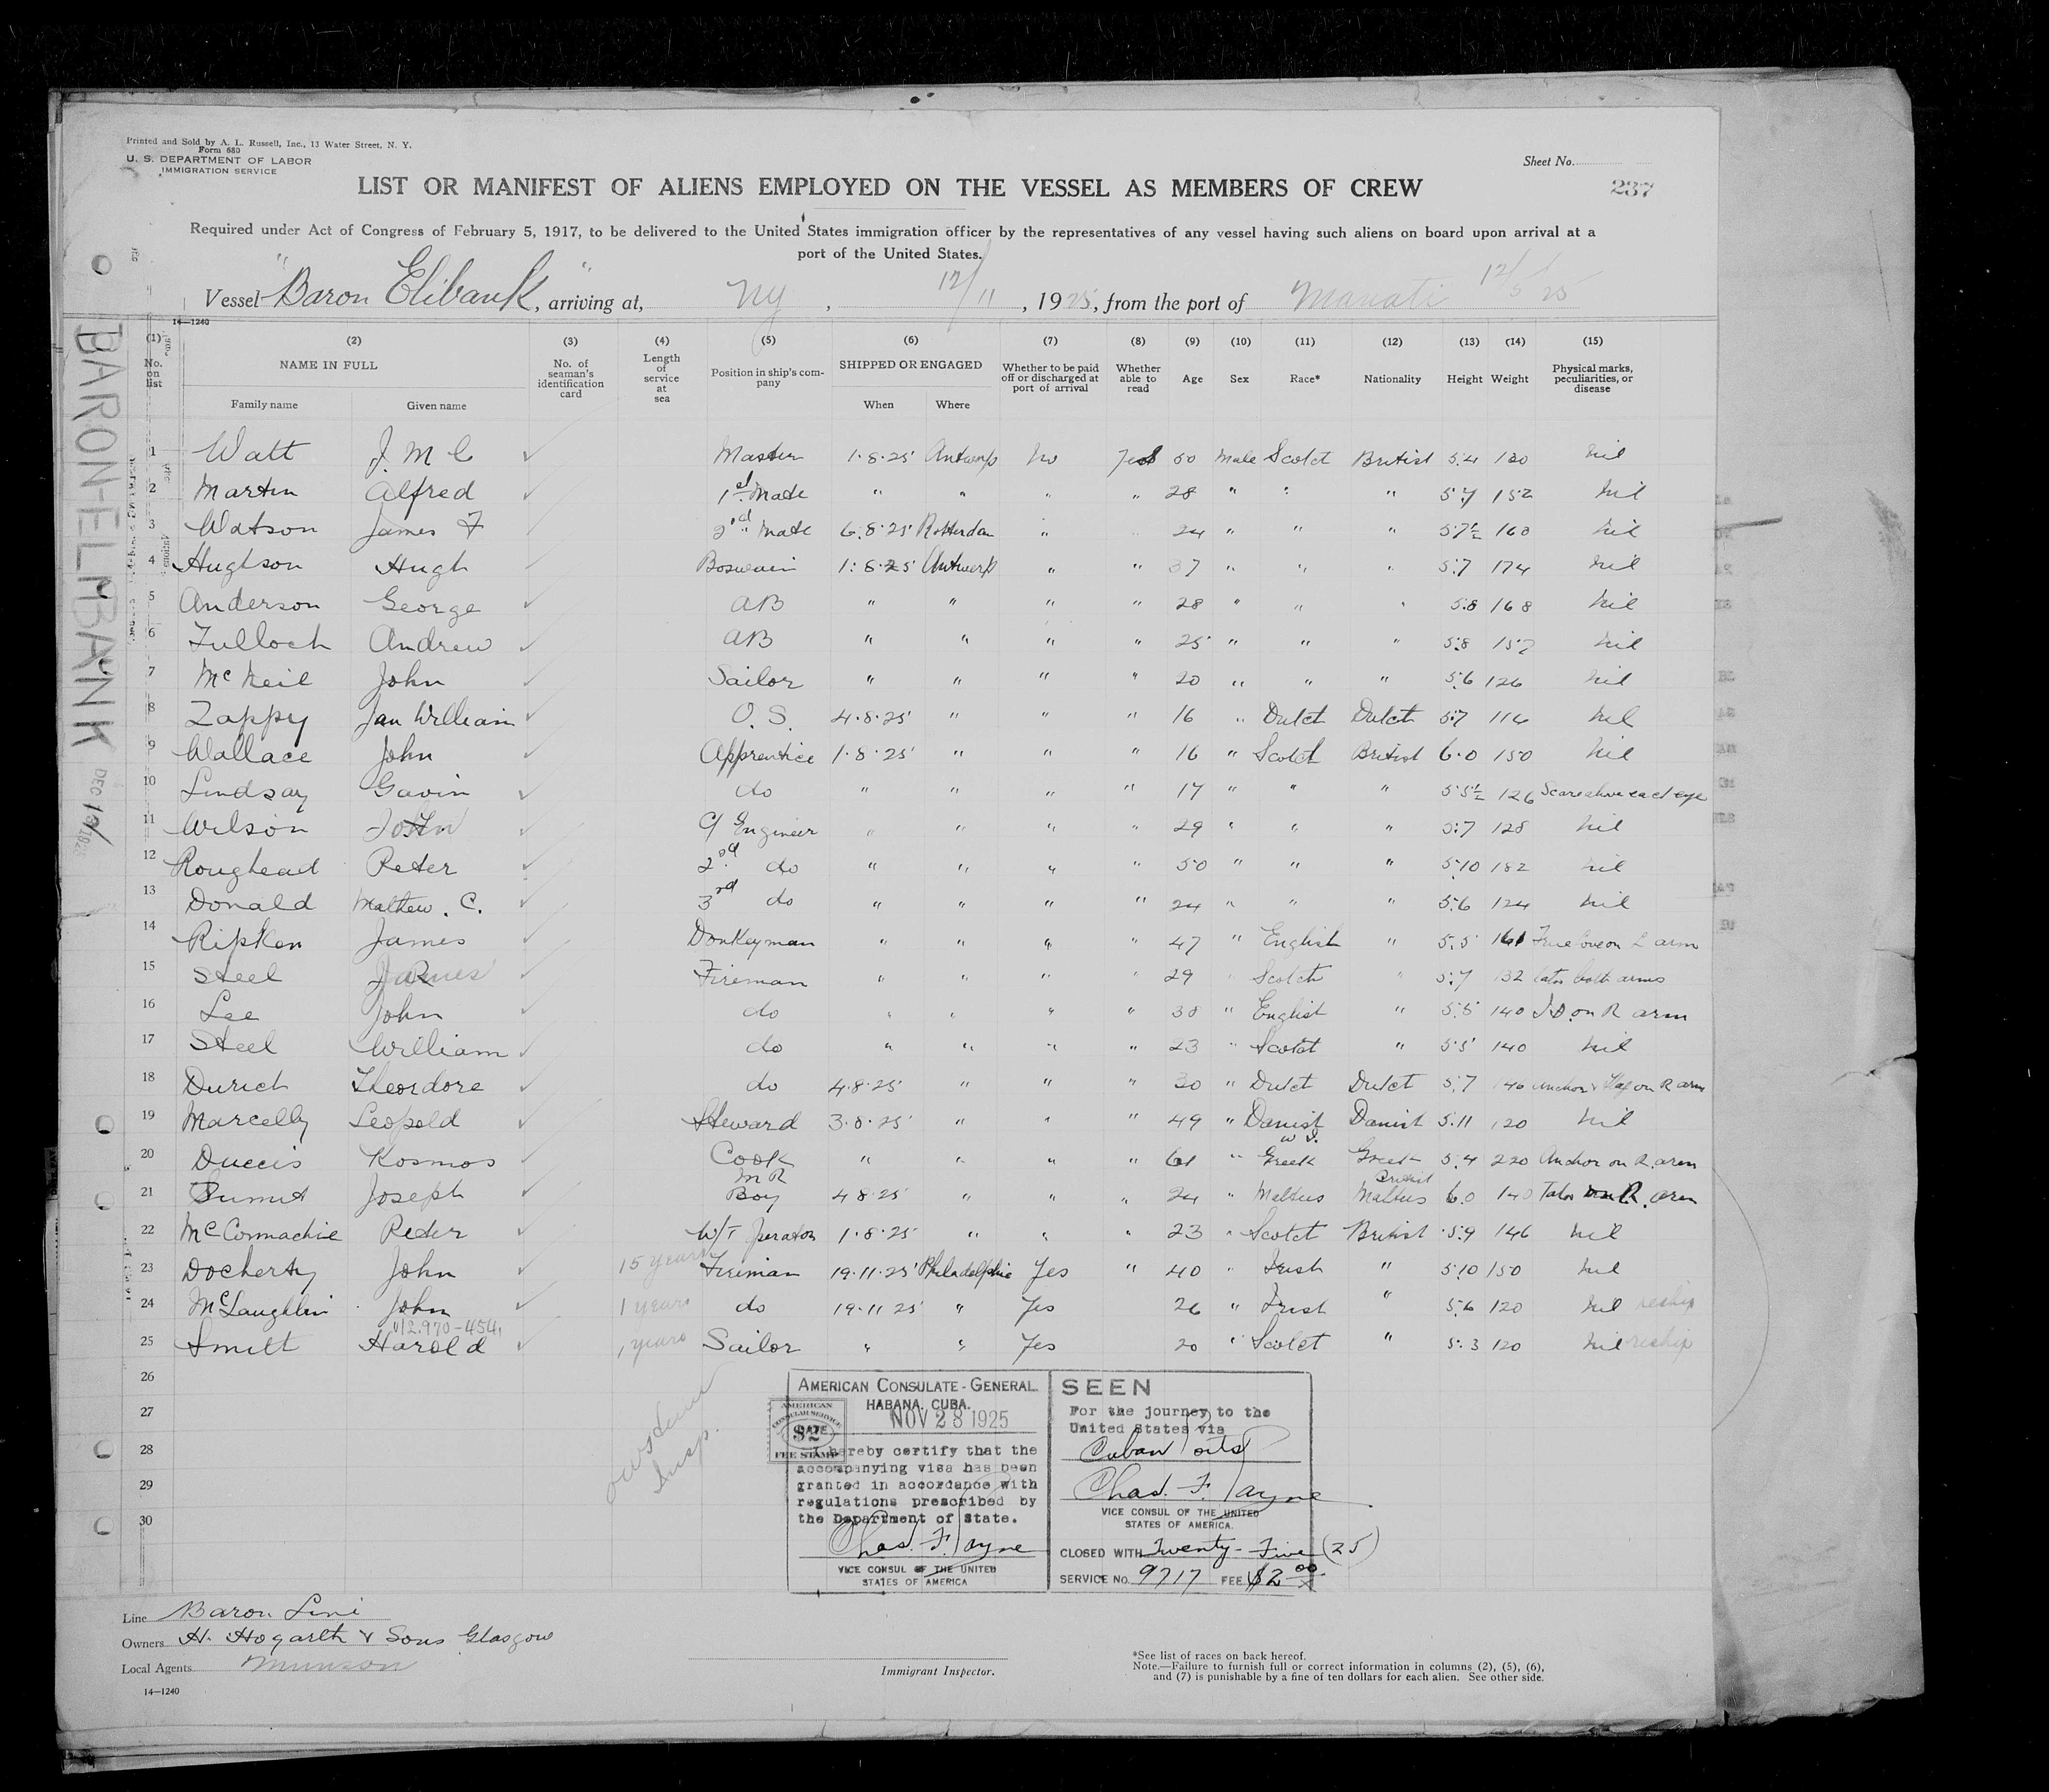 Printed and Sold by A. L. Russell, Inc., 13 Water Street, N. Y.
Form 680
U. S. DEPARTMENT OF LABOR
IMMIGRATION SERVICE
Sheet No.
237
LIST OR MANIFEST OF ALIENS EMPLOYED ON THE VESSEL AS MEMBERS OF CREW
Required under Act of Congress of February 5, 1917, to be delivered to the United States immigration officer by the representatives of any vessel having such aliens on board upon arrival at a
port of the United States.
Vessel "Baron Elibank", arriving at, NY, 12/11, 1925, from the port of Manati 12/5/25
14—1240
(1) No. on list (2) NAME IN FULL Family name Given name (3) No. of seaman's identification card (4) Length of service at sea (5) Position in ship's company (6) SHIPPED OR ENGAGED When Where (7) Whether to be paid off or discharged at port of arrival (8) Whether able to read (9) Age (10) Sex (11) Race* (12) Nationality (13) Height (14) Weight (15) Physical marks, peculiarities, or disease
BARON-ELMBANK DEC
1 Watt J. M C Master 1.8.25 Antwerp No Yes 50 Male Scotch British 5.4 130 nil
2 Martin Alfred 1st Mate " " " " 28 " " " 5.7 152 nil
3 Watson James F 2nd Mate 6.8.25 Rotterdam " 24 " " " 5.7½ 160 nil
4 Hughson Hugh Boswain 1.8.25 Antwerp " " 37 " " " 5.7 174 nil
5 Anderson George AB " " " " 28 " " " 5.8 168 nil
6 Tulloch Andrew AB " " " " 25 " " " 5.8 157 nil
7 McNeil John Sailor " " " " 20 " " " 5.6 126 nil
8 Zappy Jan William O.S. 4.8.25 " " " 16 " Dutch Dutch 5.7 114 nil
9 Wallace John Apprentice 1.8.25 " " " 16 " Scotch British 6.0 150 nil
10 Lindsay Gavin do " " " " 17 " " " 5.5½ 126 Scar above each eye
11 Wilson John C/ Engineer " " " " 29 " " " 5.7 128 nil
12 Roughead Peter 2nd do " " " " 50 " " " 5.10 182 nil
13 Donald Mathew. C. 3rd do " " " " 24 " " " 5.6 124 nil
14 Ripken James Donkeyman " " " " 47 " English " 5.5 161 True love on L arm
15 Steel James Fireman " " " " 29 " Scotch " 5.7 132 tatos both arms
16 Lee John do " " " " 38 " English " 5.5 140 J.D. on R arm
17 Steel William do " " " " 23 " Scotch " 5.5 140 nil
18 Durich Theordore do 4.8.25 " " " 30 " Dutch Dutch 5.7 146 Anchor & Flag on R arm
19 Marcelly Leopold Steward 3.8.25 " " " 49 " Danish W I. Danish 5.11 120 nil
20 Duccis Kosmos Cook " " " " 61 " Greek Greek 5.4 220 Anchor on R. arm
21 Joseph M R Boy 4 8.25 " " " 24 " Maltus British Maltus 6.0 140 Tato on R. arm
22 McCormachie Peter W/T Operator 1.8.25 " " " 23 " Scotch British 5.9 146 nil
23 Docherty John 15 years Fireman 19.11.25 Philadelphia Yes " 40 " Irish " 5.10 150 nil
24 McLaughlin John 1 years do 19.11 25 " Yes 26 " Irish " 5.6 120 nil reship
25 Smith Harold 1 years Sailor " " Yes 20 " Scotch " 5.3 120 nil reship
26
27
28
29
30
Insp.
AMERICAN CONSULATE-GENERAL
HABANA, CUBA.
NOV 28 1925
AMERICAN CONSULAR SERVICE $2 FEE STAMP
I hereby certify that the
accompanying visa has been
granted in accordance with
regulations prescribed by
the Department of State.
Chas. F. Payne
VICE CONSUL OF THE UNITED
STATES OF AMERICA
SEEN
For the journey to the
United States via
Cuban Ports
Chas. F. Payne
VICE CONSUL OF THE UNITED
STATES OF AMERICA.
CLOSED WITH Twenty-Five (25)
SERVICE NO. 9717 FEE $2.00
Line Baron Line
Owners H. Hogarth & Sons Glasgow
Local Agents Munson
14—1240
Immigrant Inspector.
*See list of races on back hereof.
Note.—Failure to furnish full or correct information in columns (2), (5), (6),
and (7) is punishable by a fine of ten dollars for each alien. See other side.